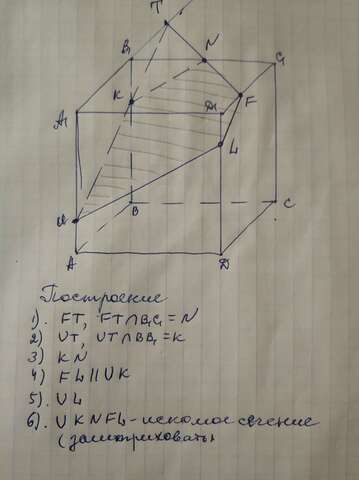 T
B₁ N C₁
K F
A₁ D₁
L
U
B C
A D
Построение
1). FT, FT∩B₁C₁ = N
2) UT, UT∩BB₁ = K
3) KN
4) FL || UK
5) UL
6) UKNFL - искомое сечение
(заштриховать)